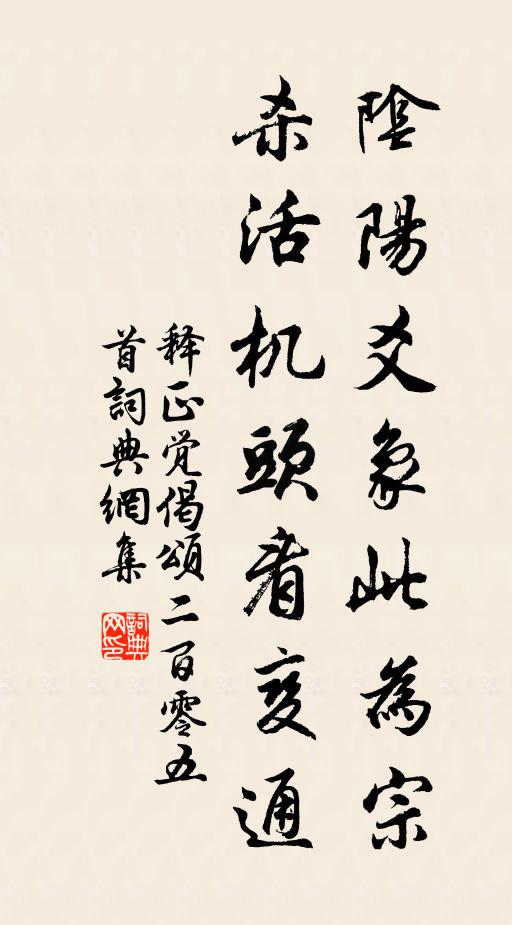 陰陽爻象此為宗
杀活机頭看变通
释正觉偈頌二百零五
首詞典網集
詞典网印